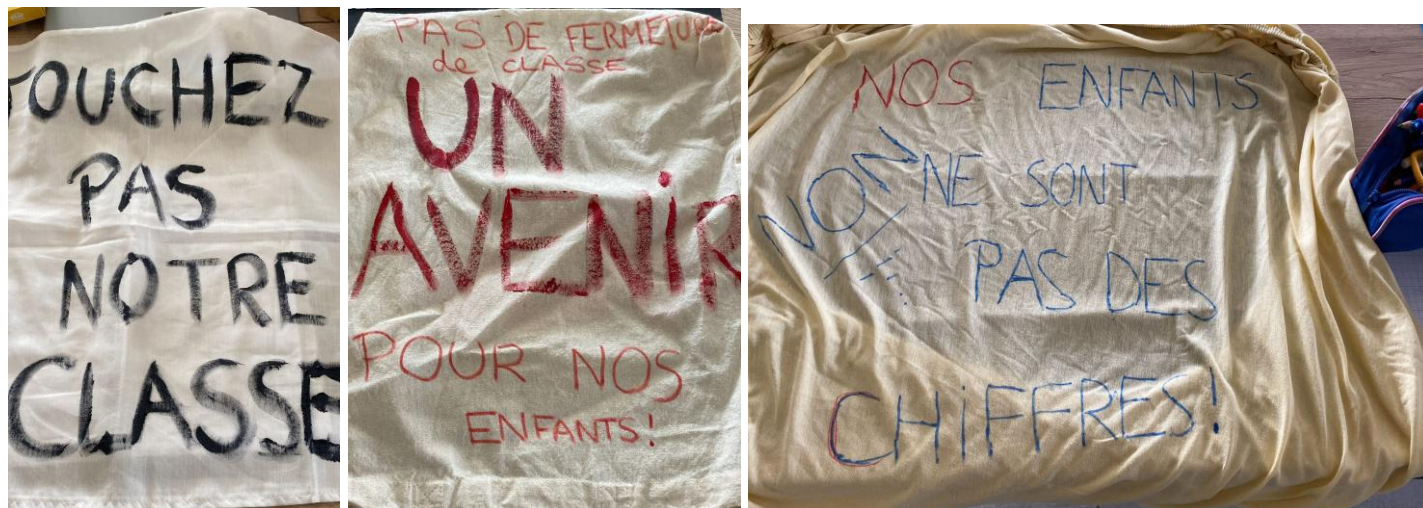 TOUCHEZ
PAS
NOTRE
CLASSE
PAS DE FERMETURE
de CLASSE
UN
AVENIR
POUR NOS
ENFANTS!
NOS ENFANTS
NON NE SONT
PAS DES
CHiFFRES!